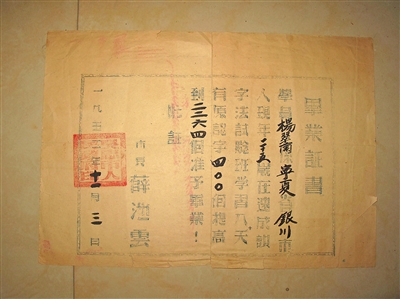 畢業証書
學員楊翠蘭寧夏銀川市
人現年二十五歲在速成識
字法試驗班學習八天
有原認字四〇〇個提高
到二三六四個准予畢業！
此証
市長 薛池雲
一九五二年十一月三日